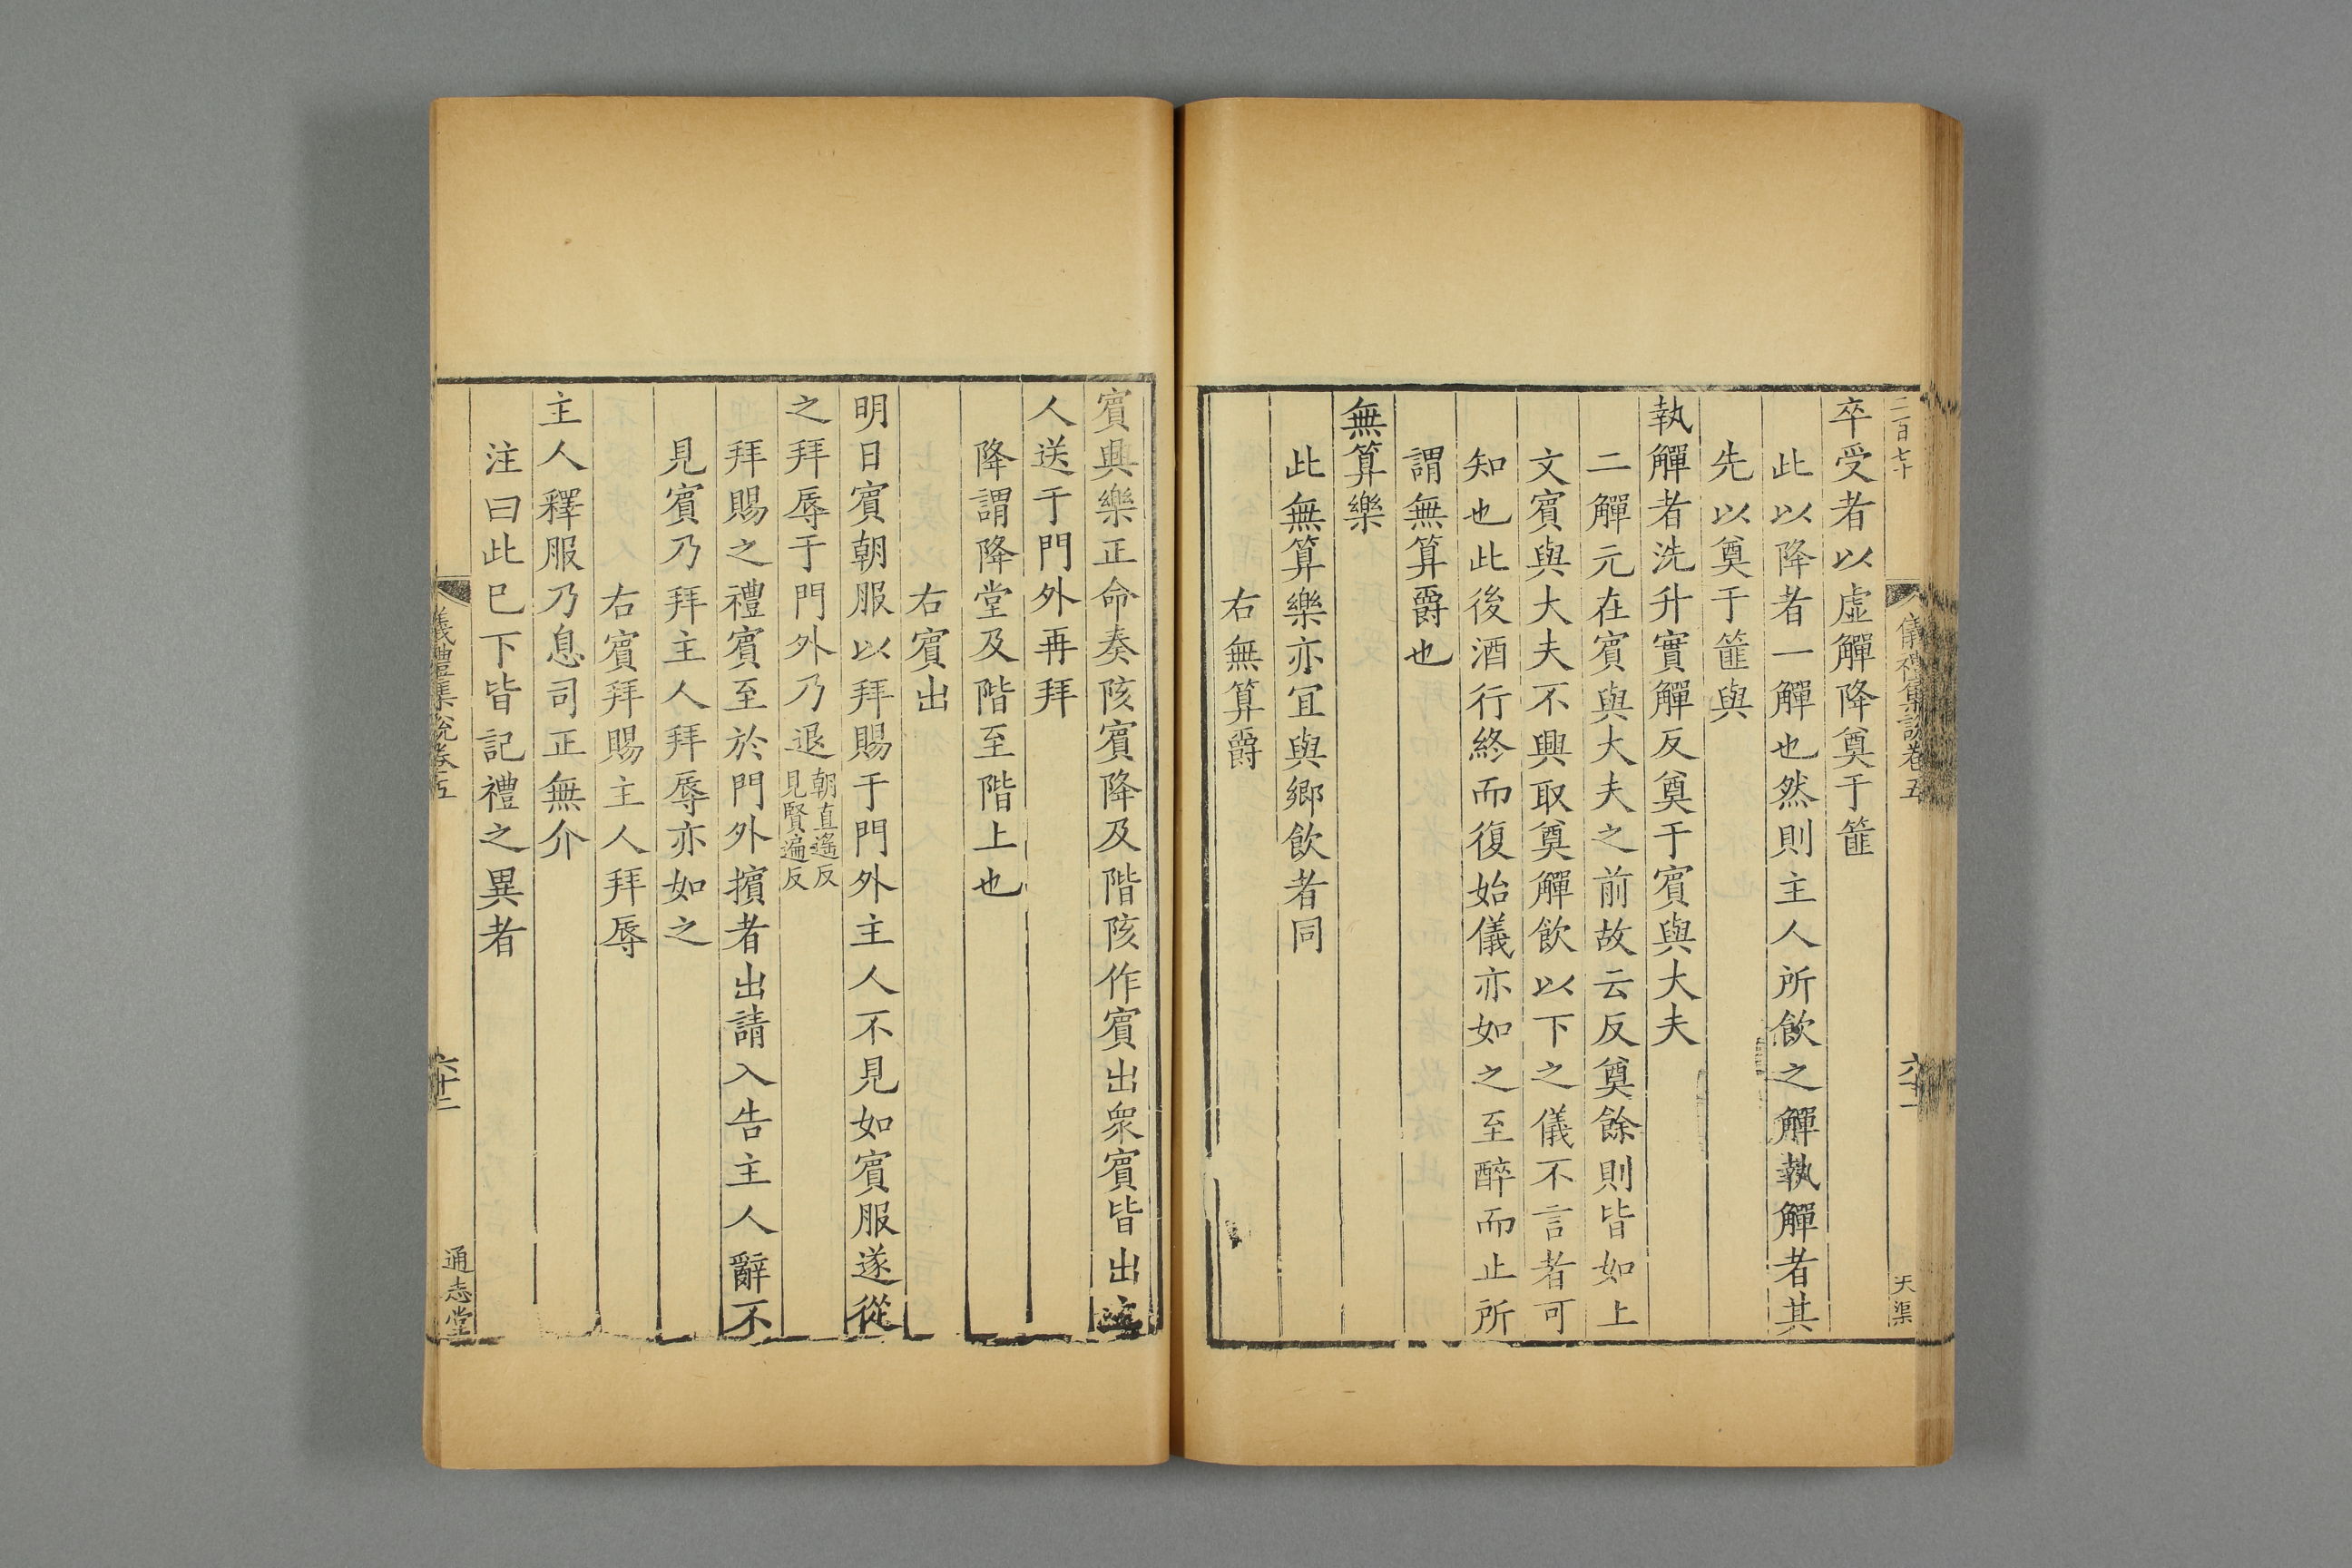 二百七十
儀禮集說卷五
天渠
卒受者以虛觶降奠于篚
此以降者一觶也然則主人所飲之觶執觶者其
先以奠于篚與
執觶者洗升實觶反奠于賓與大夫
二觶元在賓與大夫之前故云反奠餘則皆如上
文賓與大夫不興取奠觶飲以下之儀不言者可
知也此後酒行終而復始儀亦如之至醉而止所
謂無算爵也
無算樂
此無算樂亦宜與鄉飲者同
右無算爵
賓興樂正命奏陔賓降及階陔作賓出衆賓皆出
人送于門外再拜
降謂降堂及階至階上也
右賓出
明日賓朝服以拜賜于門外主人不見如賓服遂從
之拜辱于門外乃退朝直遙反見賢遍反
拜賜之禮賓至於門外擯者出請入告主人辭不
見賓乃拜主人拜辱亦如之
右賓拜賜主人拜辱
主人釋服乃息司正無介
注曰此巳下皆記禮之異者
儀禮集說卷五
六十二
通志堂